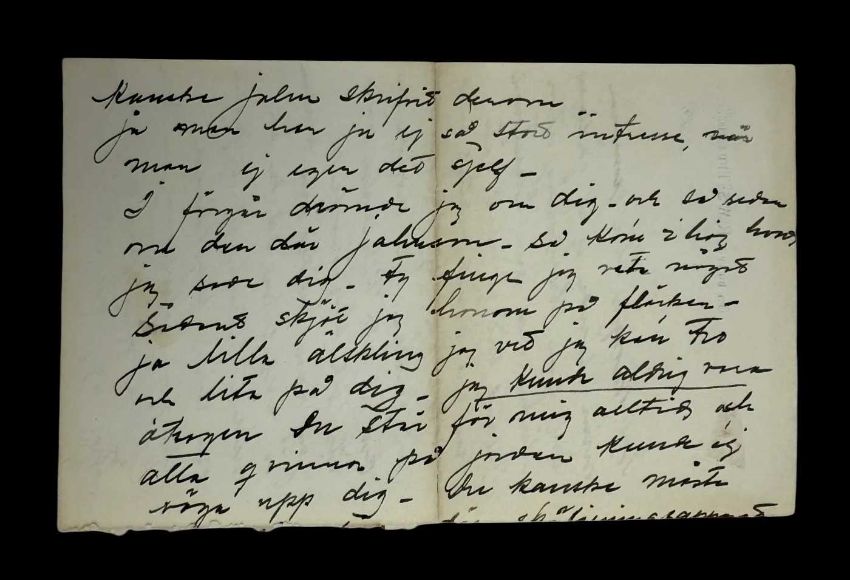 Kanske john skrifvit derom
ja man har ju ej så stort intresse, när
man ej eger det sjelf –
I förgår drömde jag om dig – och så sedan
om den där johnson – så kom i håg hvad
jag sade dig – Ty finge jag veta något
sådant skjöt jag honom på fläcken –
ja lilla älskling jag vet jag kan tro
och lita på dig – jag kunde aldrig vara
otrogen Du står för mig alltid och
alla qvinnor på jorden kunde ej
väga upp dig – Du kanske måste